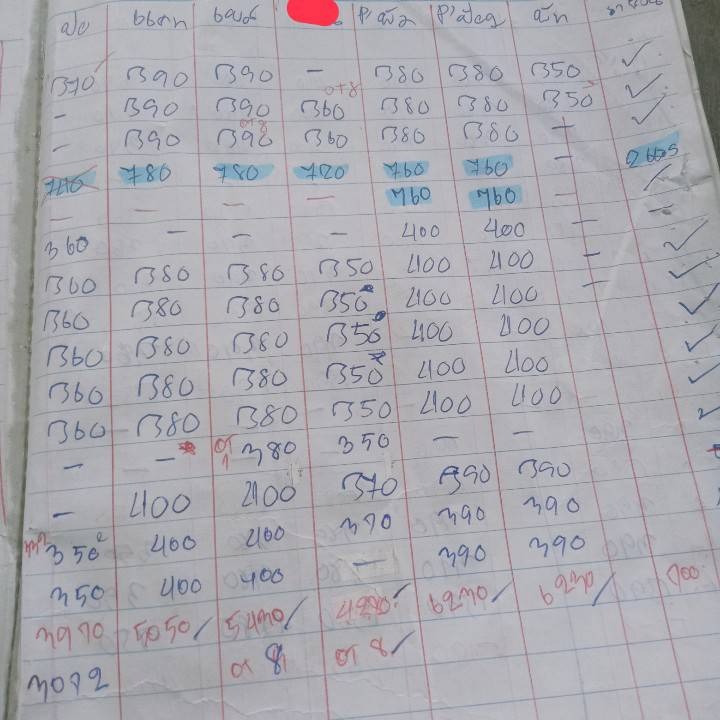 ปอ แตก เบส P'ผัว P'เมีย นัท
370 390 390 — 380 380 350 ✓
— 390 390 360 380 380 350 ✓
— 390 390 360 380 380 — ✓
740 780 780 720 760 760 —
— — — — 760 760 —
360 — — — 400 400 — —
360 380 380 350 400 400 — ✓
360 380 380 350 400 400 — ✓
360 380 380 350 400 400 ✓
360 380 380 350 400 400 ✓
360 380 380 350 400 400 ✓
— — 380 350 — — ✓
— 400 400 370 390 390
350 400 400 370 390 390
350 400 400 — 390 390
3970 5050/ 5430/ 6230/ 6230/ 100
3072 OT 8 OT 8/